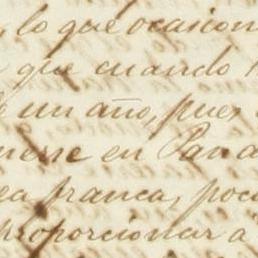 , lo que ocasion
que cuando
un año, pues
nerse en Pana
ea franca, poc
proporcionar á